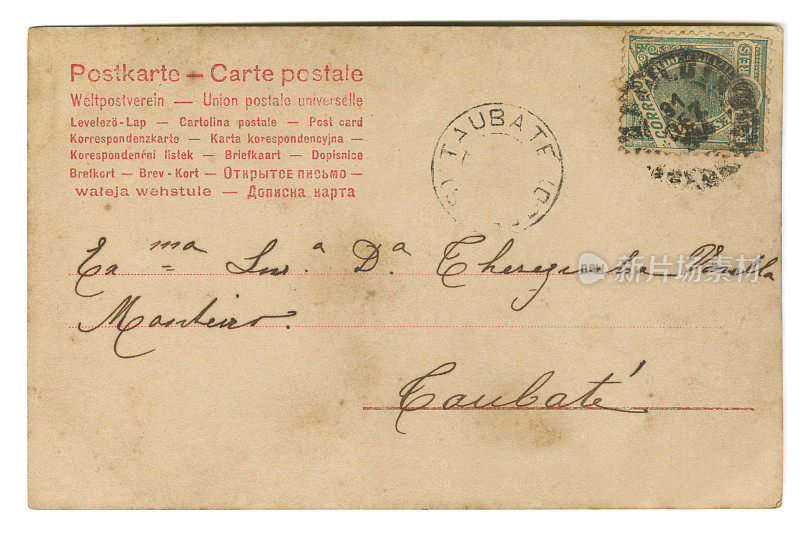 Postkarte – Carte postale
Weltpostverein — Union postale universelle
Levelezö-Lap — Cartolina postale — Post card
Korrespondenzkarte — Karta korespondencyjna —
Korespondenční listek — Briefkaart — Dopisnice
Brefkort — Brev-Kort — Открытое письмо —
wateja wehstule — Дописна карта
TAUBATE
CORREIO
REIS
Ex ma Snr.a D.a Therezinha Varella
Monteiro.
Taubaté
new 新片素材